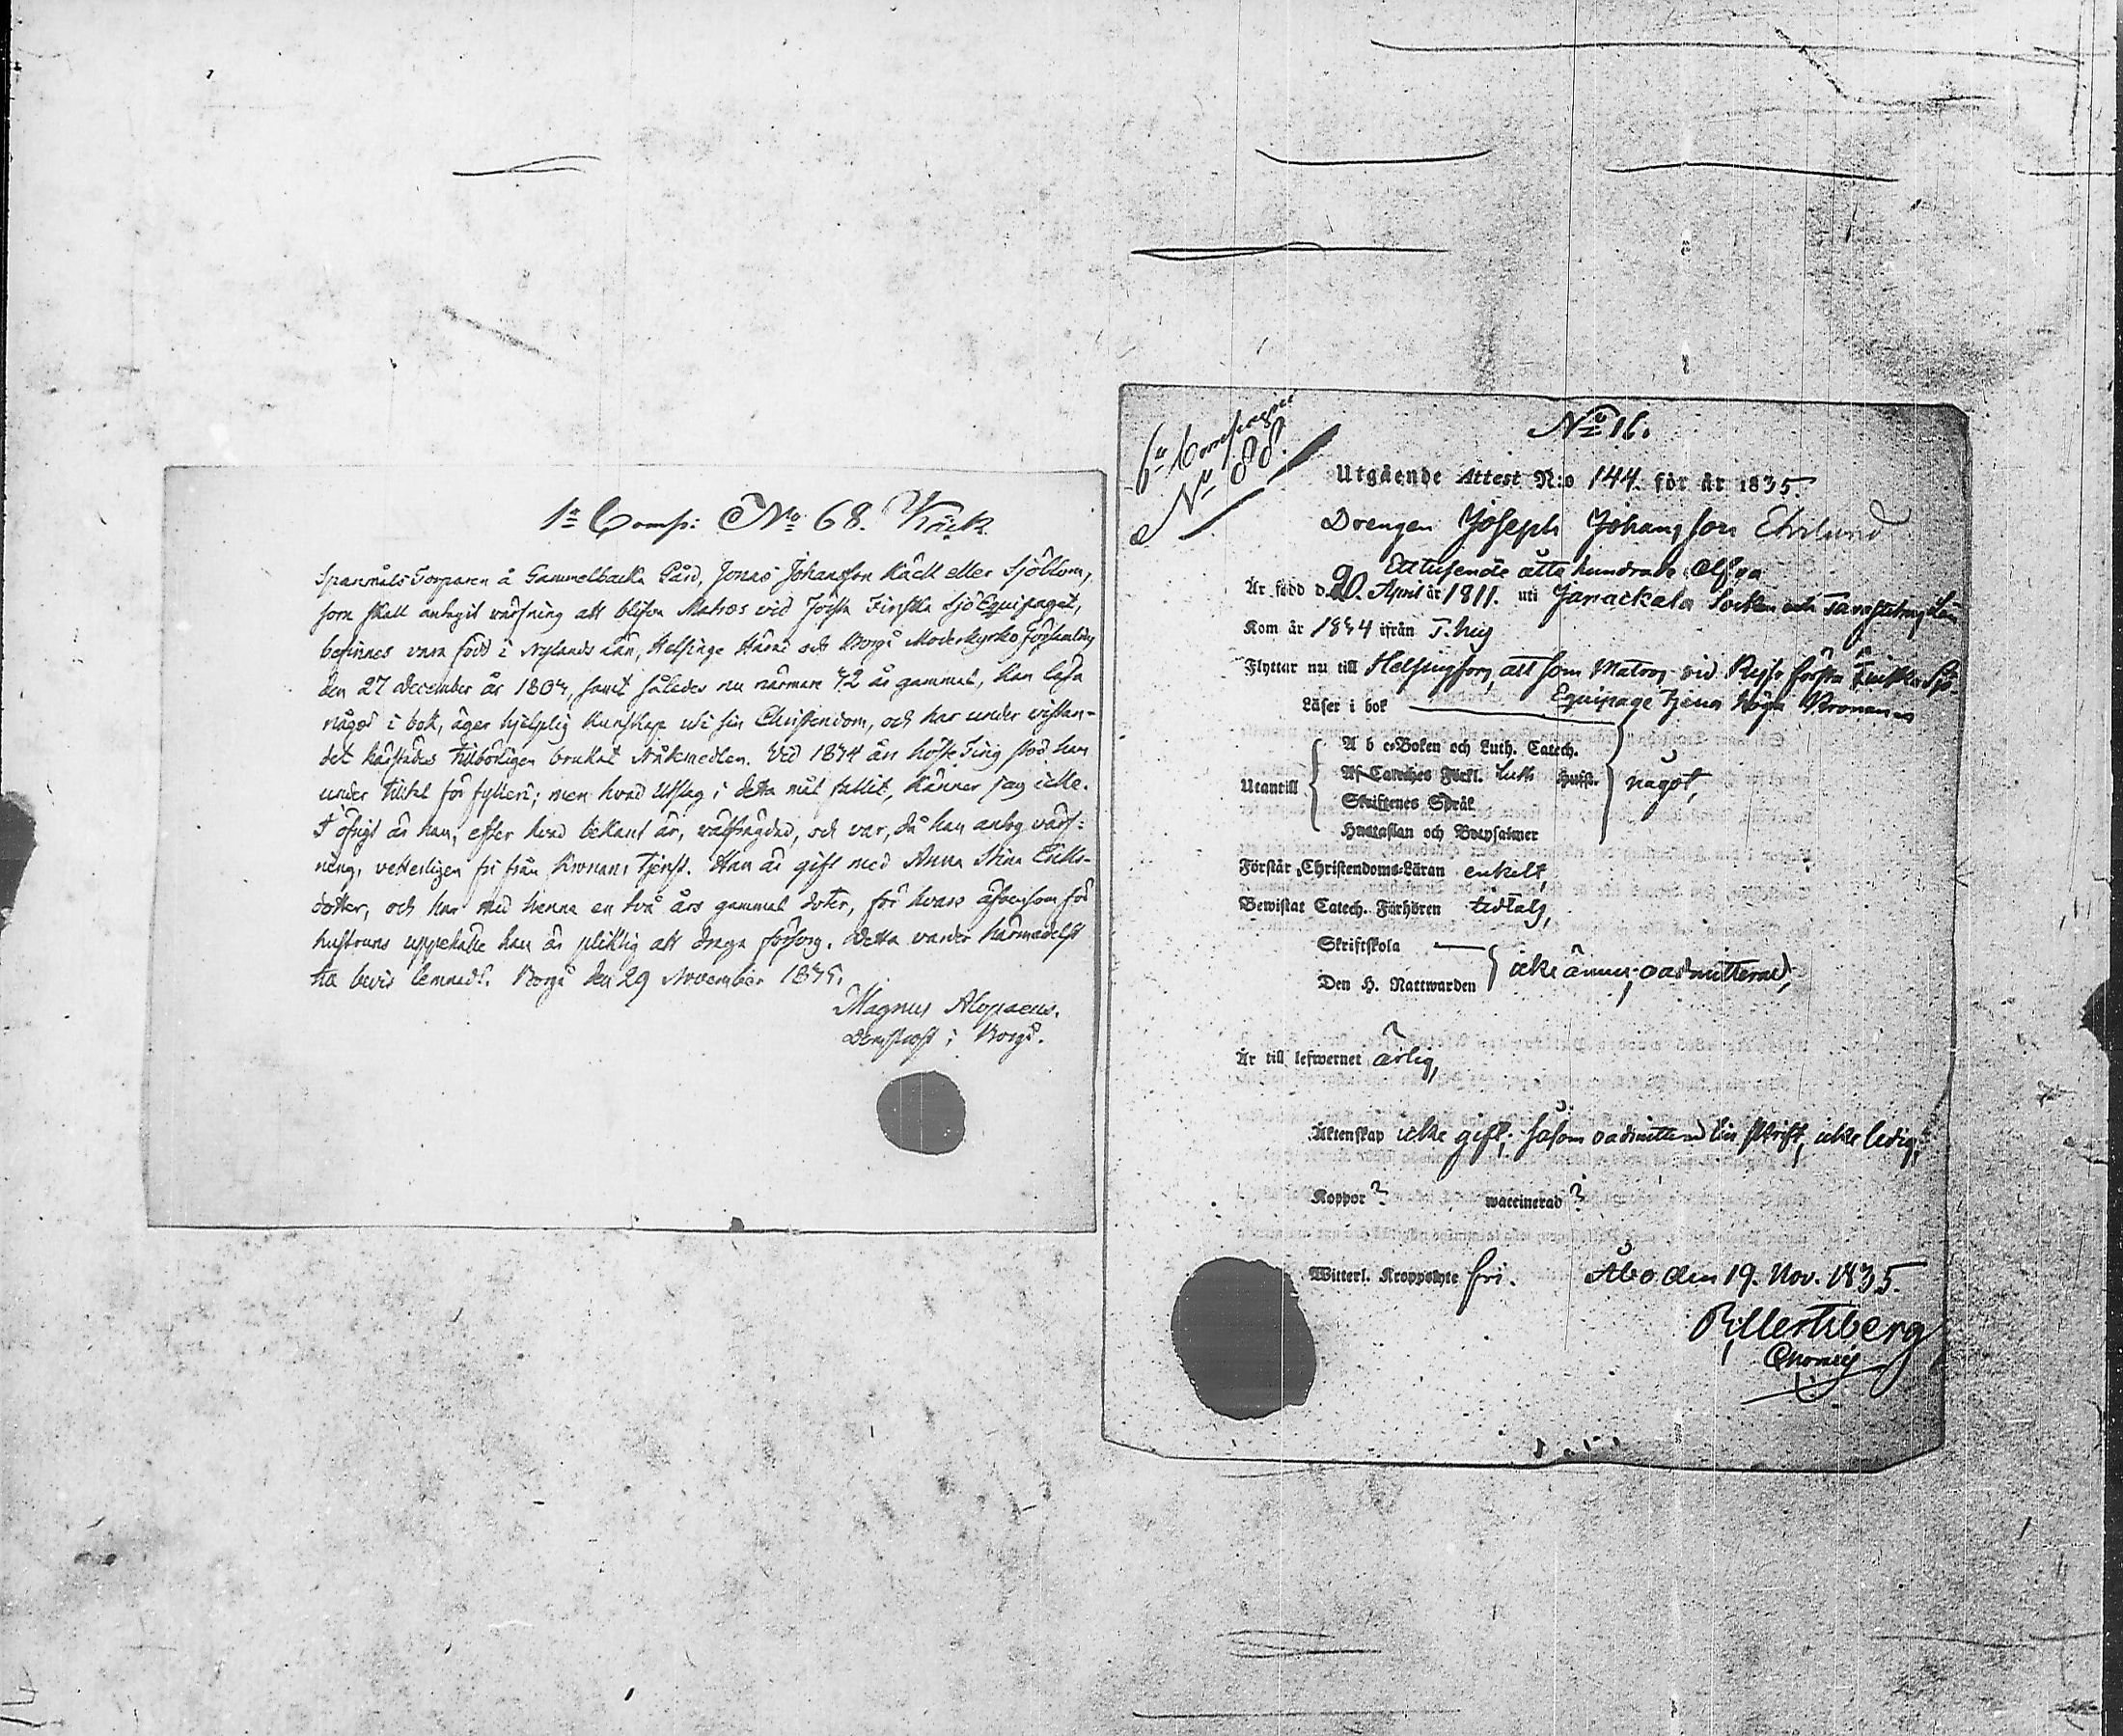 1:a Comp: No 68. Käck
Spanmåls Torparen å Gammelbacka Gård, Jonas Johansson Käck eller Sjöblom,
som skall antagit värfning att blifva Matros vid Första Finska Sjö Equipaget,
befinnes vara född i Nylands Län, Helsinge Härad och Borgå Moderkyrko församling
den 27 December år 1803, samt således nu närmare 32 år gammal, kan läsa
något i bok, äger hjelplig kunskap uti sin Christendom, och har under vistan-
det härstädes tillbörligen brukat Nådemedlen. Vid 1834 års höste Ting stod han
under tilltal för fylleri; men hvad Utslag i detta mål fallit, känner jag icke.
I öfrigt är han, efter hvad bekant är, välfrägdad, och var, då han antog värf-
ning, vetterligen fri från Kronans tjenst. Han är gift med Anna Stina Eriks-
dotter, och har med henne en två års gammal doter, för hvars äfvensom för
hustruns uppehälle han är pliktig att draga försorg. Detta varder härmedelst
till bevis lemnadt. Borgå den 29 November 1835.
Magnus Alopaeus.
Domprost i Borgå.
6:e Compagniet
No 88.
No 16.
Utgående Attest N:o 144. för år 1835.
Drengen Joseph Johansson Ehrlund
Ettusende åtta hundrade Elfva
Är född d. 20. April år 1811. uti Janackala Socken och Tavastehus Län
Kom år 1834 ifrån T:hus
Flyttar nu till Helsingfors, att som Matros vid Ryss. första Finska Sjö-
Equipage tjena höga Kronan
Läser i bok
A b c-Boken och Luth. Catech.
Af Catechés Förkl. Luth Hufft.
Utantill något,
Skriftenes Språk
Hustaflan och Botpsalmer
Förstår Christendoms-Läran enkelt,
Bewistat Catech. Förhören tidtals,
Skriftskola
icke ännu; oadmitterad;
Den H. Nattwarden
Är till lefwernet ärlig,
Äktenskap icke gift; såsom oadmitterad till skrift, icke ledig;
Koppor ? waccinerad ?
Witterl. Kroppslyte fri. Åbo den 19. Nov. 1835.